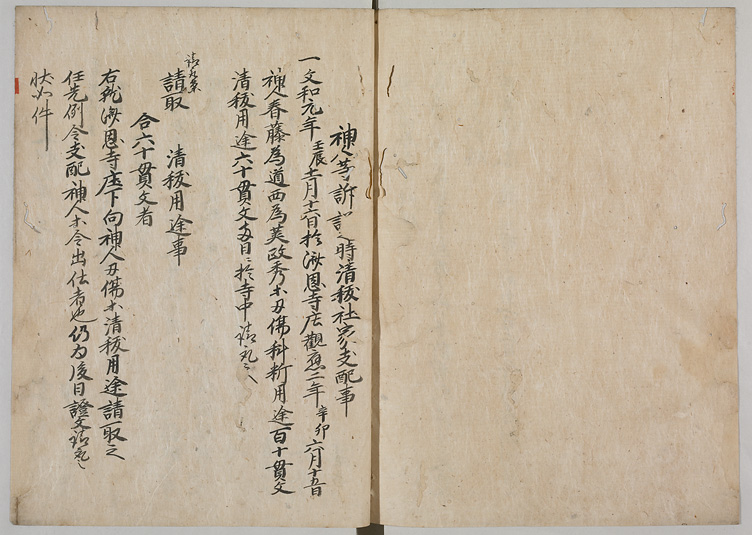 神人等訴訟之時清秡社家支配事
一文和元年壬辰十二月十六日於海恩寺庄觀應二年辛卯六月十五日
神人春藤為道西為英政秀等刃傷科新用途百十貫文
清秡用途六十貫文両日於寺中請取之
請取案
請取 清秡用途事
合六十貫文者
右就海恩寺庄下向神人刃傷等清秡用途請取之
任先例令支配神人等令出仕者也仍為後日證文請取之
状如件